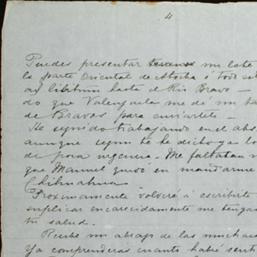 4
Puedes presentar en este
la parte Oriental de Atocha ó todo
ad libitum hasta el Rio Bravo —
do que Valenzuela me dé mi
de Bravos para enviartelo —
He seguido trabajando en el
aunque segun te he dicho ya
de poca urgencia. Me faltaban
que Manuel quedó en mandarme
Chihuahua
Proximamente volveré á escribirte
suplicar encarecidamente me tengas
tu salud.
Recibe mi abrazo de las muchachas
Ya comprenderas cuanto habré